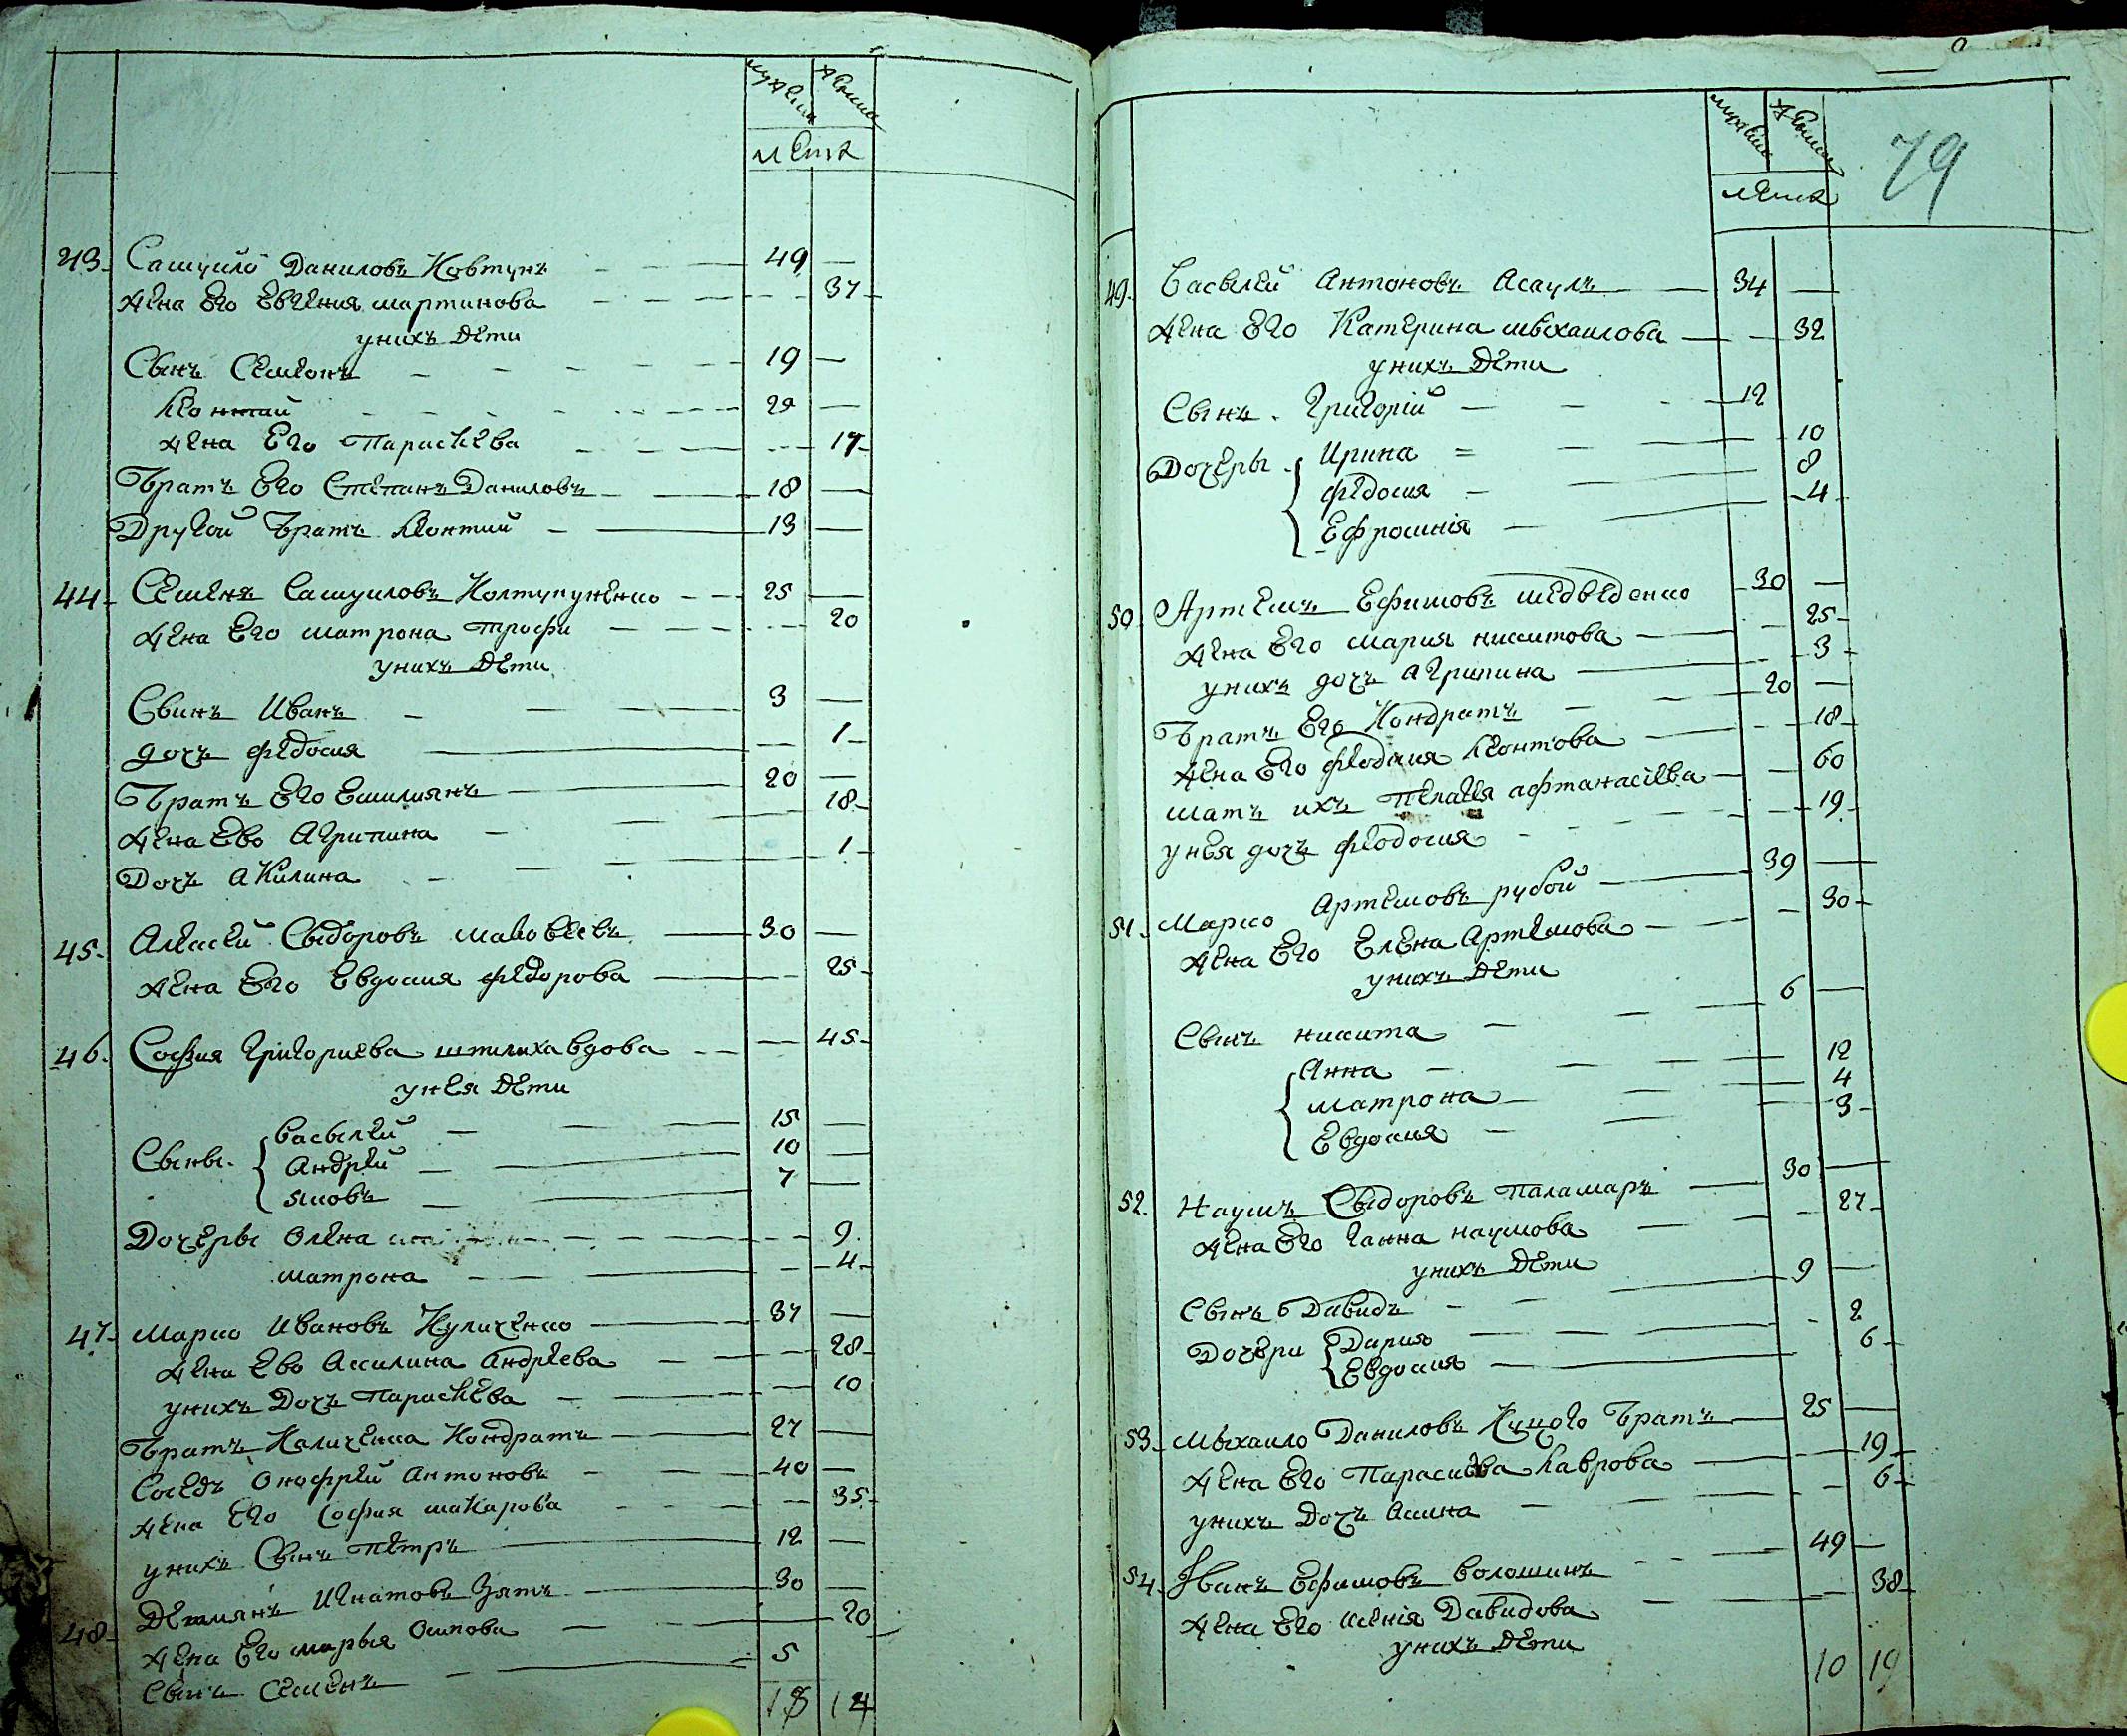 мужска женска
лета
43. Самуйло Даниловъ Ковтунъ 49
жена Его Евгения мартинова 37
унихъ Дети
Сынъ Семионъ 19
Леонтий 29
жена Его Параскева 17
Братъ Его Степанъ Даниловъ 18
Другой Братъ Леонтий 13
44. Семенъ Самуиловъ Колтупуненко 25
жена Его матрона трофи 20
унихъ Дети
Сынъ Иванъ 3
дочъ федосия 1
Братъ Его Емилиянъ 20
жена Ево Агрипина 18
Дочъ Акилина 1
45. Алексей Сыдоровъ маковеевъ 30
жена Его Евдокия федорова 25
46. София Григориева шпилиха вдова 45
унея Дети
Сыны васылей 15
Андрей 10
яковъ 7
Дочеры Олена 9
матрона 4
47. Марко Ивановъ Куличенко 37
жена Ево Акилина Андреева 28
унихъ Дочъ Параскева 10
Братъ Каличенка Кондратъ 27
Соседъ Онофрей Антоновъ 40
жена Его София макарова 35
унихъ Сынъ Петръ 12
48. Демиянъ Игнатовъ Зятъ 30
жена Его марья Осипова 20
Сынъ Семенъ 5
18 14
79
мужска женска
лета
49. Васылей Антоновъ Асаулъ 34
жена Его Катерина мыхаилова 32
унихъ Дети
Сынъ Григорий 12
Дочеры Ирина 10
федосия 8
Ефросиния 4
50. Артемъ Ефимовъ медведенко 30
жена Его мария никитова 25
унихъ дочъ Агрипина 3
Братъ Его Кондратъ 20
жена Его феодосия Леонтова 18
матъ ихъ Пелагея афтанасиева 60
унея дочъ феодосия 19
51. Марко Артемовъ рубой 39
жена Его Елена Артемова 30
унихъ Дети
Сынъ никита 6
Анна 12
матрона 4
Евдокия 3
52. Наумъ Сыдоровъ Паламаръ 30
жена Его Ганна наумова 27
унихъ Дети
Сынъ Давидъ 9
Дочери Дария 2
Евдокия 6
53. Мыхаило Даниловъ Куцого Братъ 25
жена Его Параскева Лаврова 19
унихъ Дочъ Акина 6
54. Иванъ Ефимовъ волошинъ 49
жена Его ксения Давидова 38
унихъ Дети
10 19